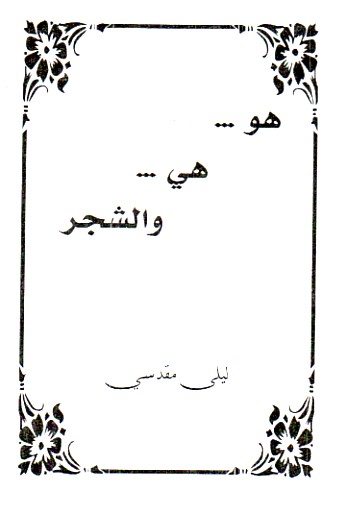 هو ...
هي ...
والشجر
ليلى مقدسي